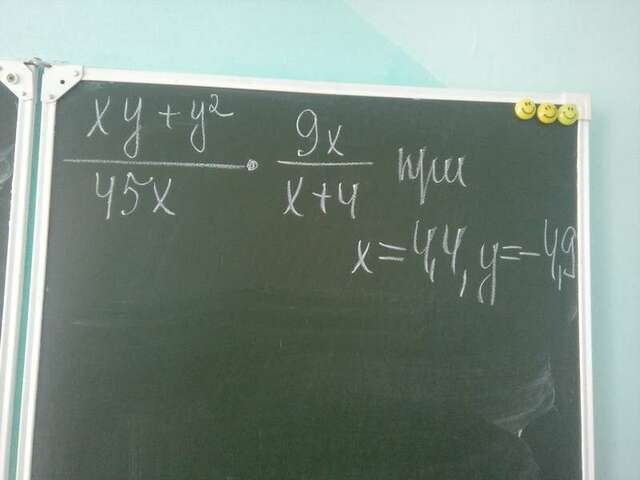 xy+y² / 45x · 9x / x+4 при
x=4,4, y=-4,9